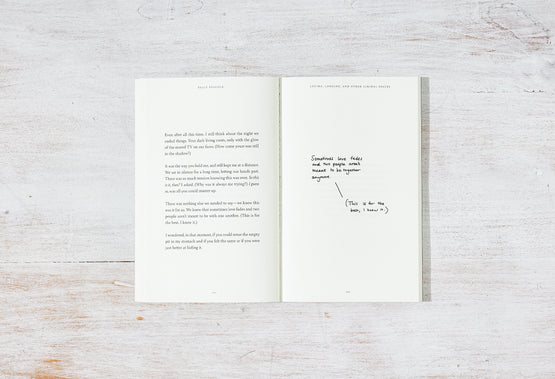 KELLY PEACOCK
Even after all this time, I still think about the night we
ended things. Your dark living room, only with the glow
of the muted TV on our faces. (How come yours was still
in the shadow?)
It was the way you held out, and still kept me at a distance.
Yet sat in silence for a long time, letting our hands part.
There was so much tension knowing this was over. Is this
it is, then? I asked. (Why was it always me trying?) I guess
it was all you could muster up.
There was nothing else we needed to say—we knew this
was it for us. We knew that sometimes love fades and two
people aren't meant to be with one another. (This is for
the best, I know it.)
I wondered, in that moment, if you could sense the empty
pit at my stomach and if you felt the same or if you were
just better at hiding it.
LOVING, LONGING, AND OTHER LIMINAL SPACES
Sometimes love fades
and two people aren't
meant to be together
anymore.
(This is for the
best, I know it.)